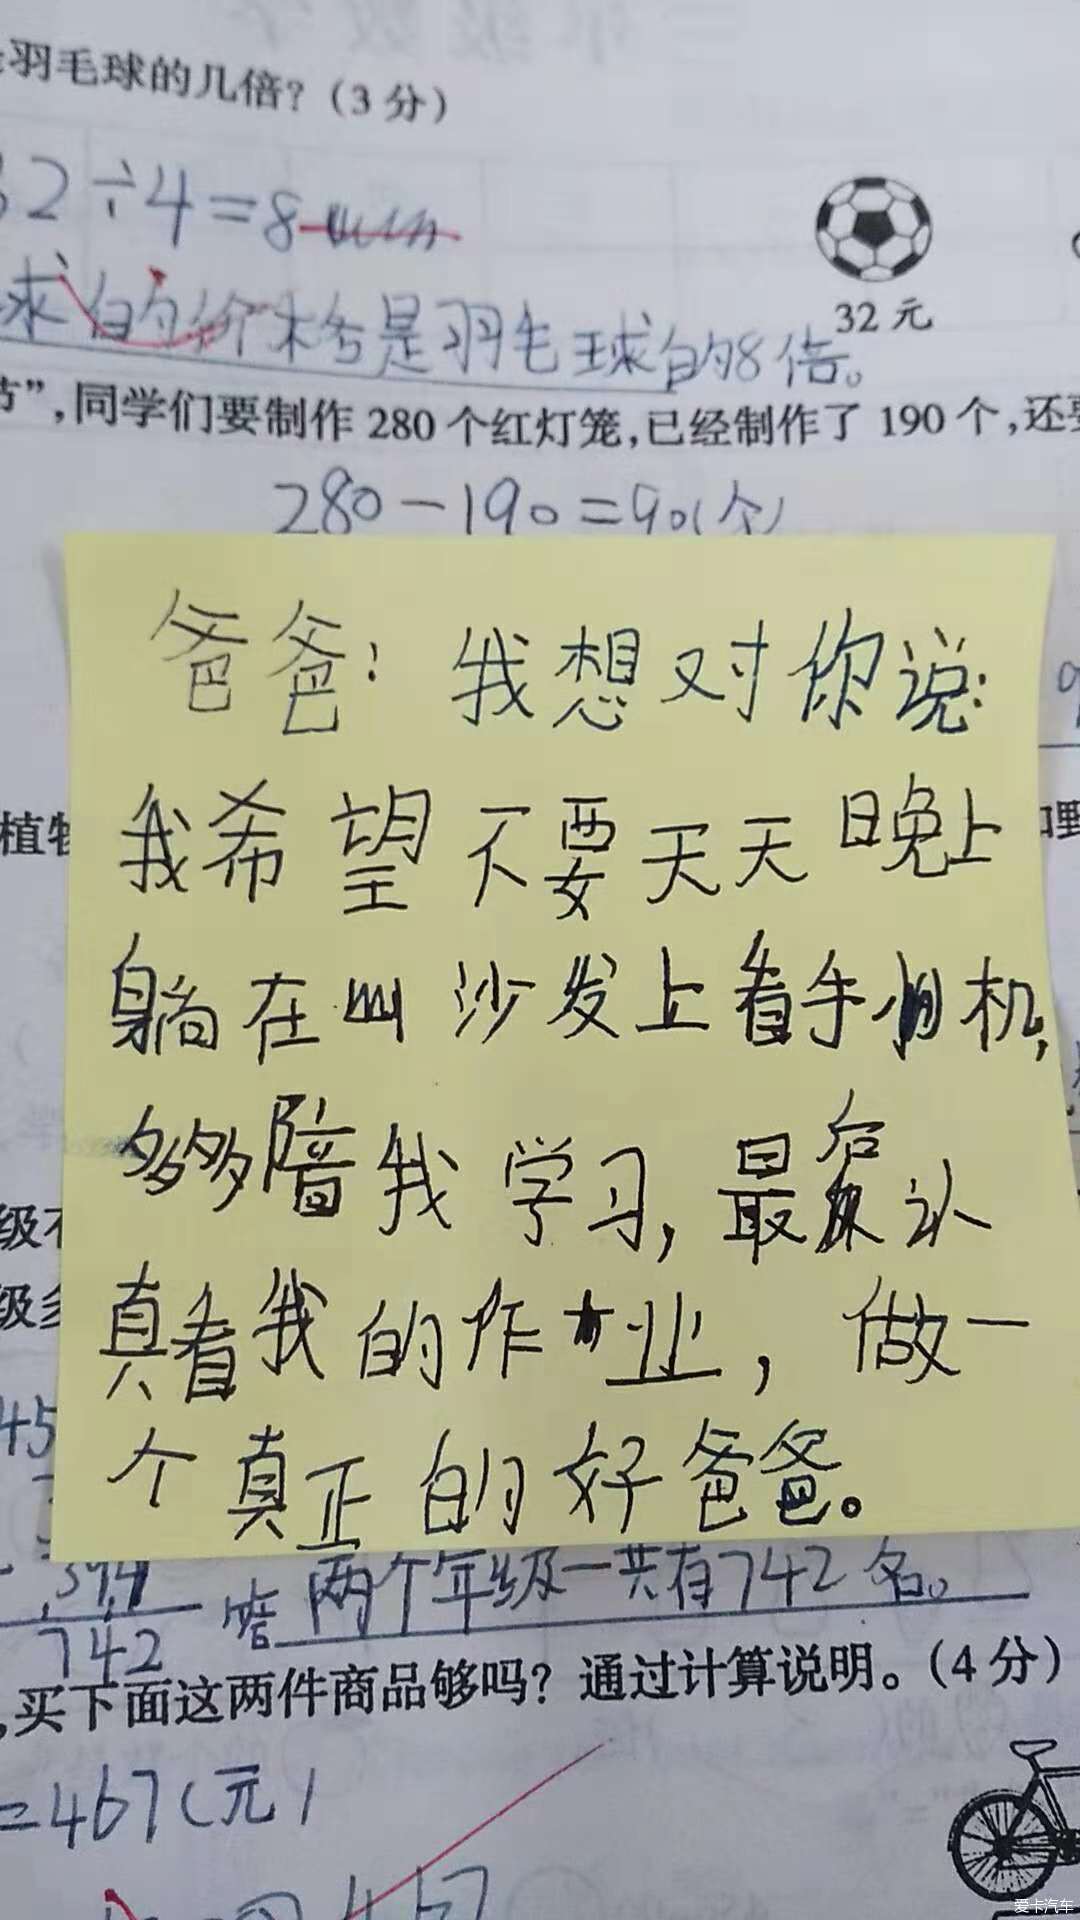 羽毛球的几倍？（3分）
32÷4=8
球的价格是羽毛球的8倍。
32元
节”，同学们要制作280个红灯笼，已经制作了190个，还要
280-190=90(个)
爸爸：我想对你说：
植物
我希望不要天天晚上
躺在沙发上看手机，
多多陪我学习，最后认
级
真看我的作业，做一
级多
45
个真正的好爸爸。
394
答 两个年级一共有742名。
742
，买下面这两件商品够吗？通过计算说明。（4分）
=467(元)
467
爱卡汽车